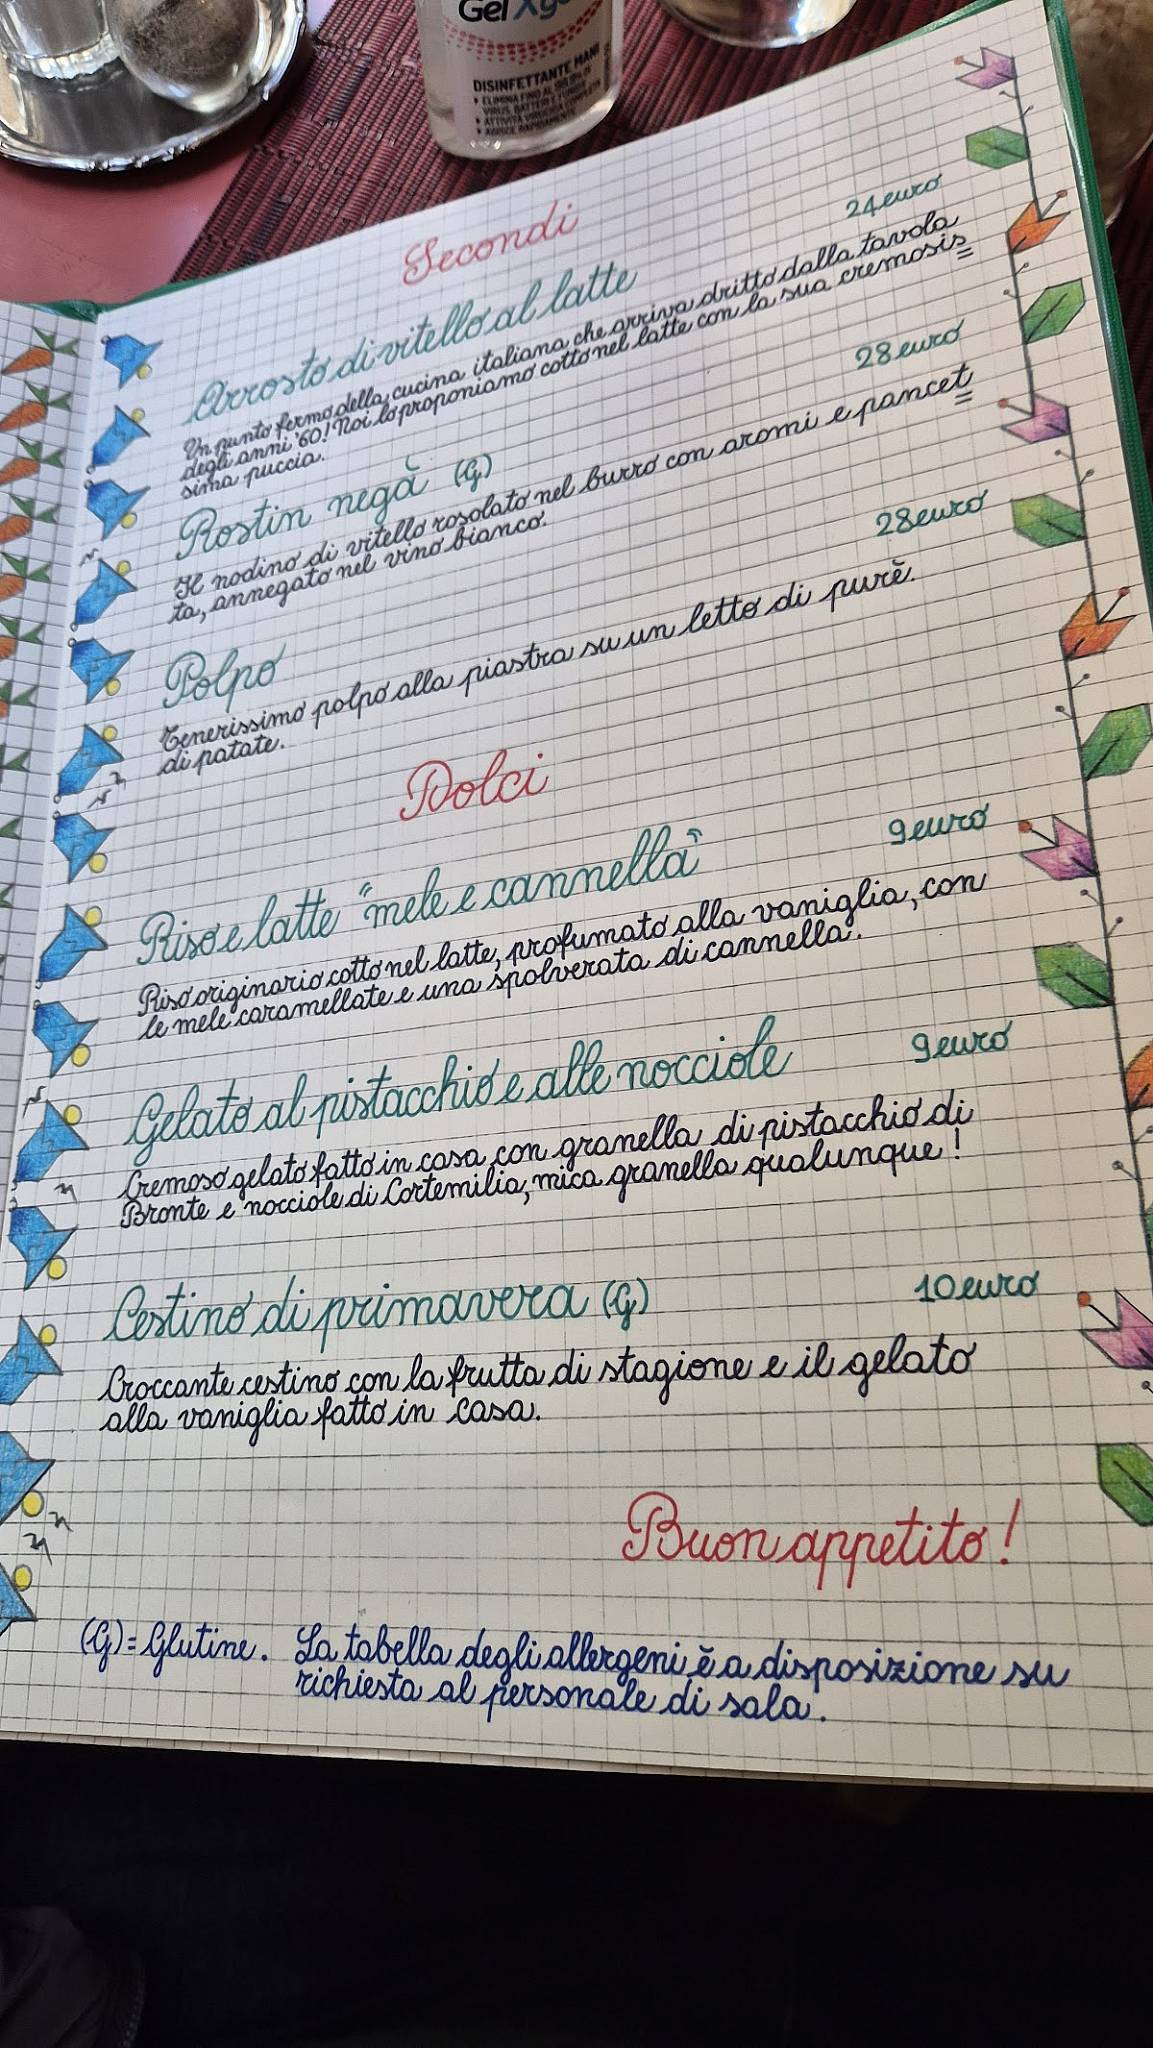 Gel X
DISINFETTANTE MANI
ELIMINA FINO AL 99,9% DI
VIRUS, BATTERI E FUNGHI
ATTIVITÀ VIRUCIDA COMPLETA
AGISCE RAPIDAMENTE
Secondi
Arrosto di vitello al latte 24 euro
Un punto fermo della cucina italiana che arriva dritto dalla tavola
degli anni '60! Noi lo proponiamo cotto nel latte con la sua cremosis=
sima puccia.
Rostin negà (G) 28 euro
Il nodino di vitello rosolato nel burro con aromi e pancet=
ta, annegato nel vino bianco.
Polpo 28 euro
Tenerissimo polpo alla piastra su un letto di purè
di patate.
Dolci
Riso e latte "mele e cannella" 9 euro
Riso originario cotto nel latte, profumato alla vaniglia, con
le mele caramellate e una spolverata di cannella.
Gelato al pistacchio e alle nocciole 9 euro
Cremoso gelato fatto in casa con granella di pistacchio di
Bronte e nocciole di Cortemilia, mica granella qualunque!
Cestino di primavera (G) 10 euro
Croccante cestino con la frutta di stagione e il gelato
alla vaniglia fatto in casa.
Buon appetito!
(G) = Glutine. La tabella degli allergeni è a disposizione su
richiesta al personale di sala.